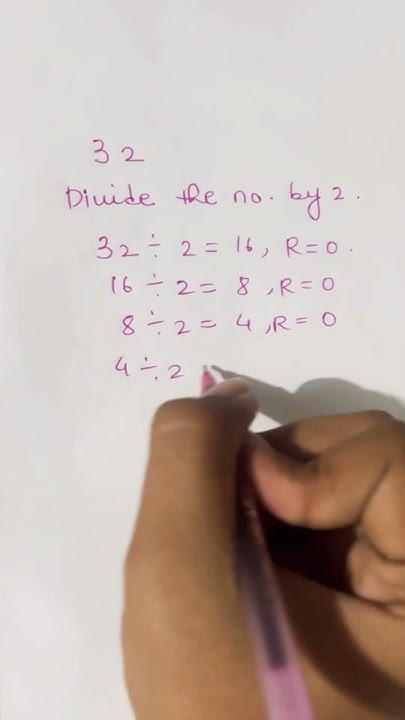 32
Divide the no. by 2.
32 ÷ 2 = 16, R = 0.
16 ÷ 2 = 8, R = 0
8 ÷ 2 = 4, R = 0
4 ÷ 2